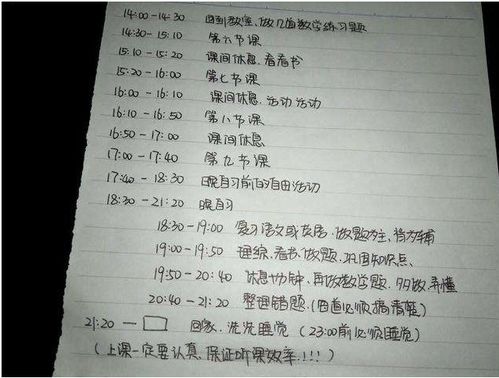 14:00-14:30 回到教室,做几道数学练习题
14:30-15:10 第六节课
15:10-15:20 课间休息,看看书
15:20-16:00 第七节课
16:00-16:10 课间休息,活动活动
16:10-16:50 第八节课
16:50-17:00 课间休息
17:00-17:40 第九节课
17:40-18:30 晚自习前的自由活动
18:30-21:20 晚自习
18:30-19:00 复习语文或英语,做题为主,背为辅
19:00-19:50 理综,看书,做题,巩固知识点.
19:50-20:40 休息十分钟,再做数学题,多做,弄懂
20:40-21:20 整理错题.(每道必须搞清楚)
21:20— 回家,洗洗睡觉(23:00前必须睡觉)
(上课一定要认真,保证听课效率!!!)